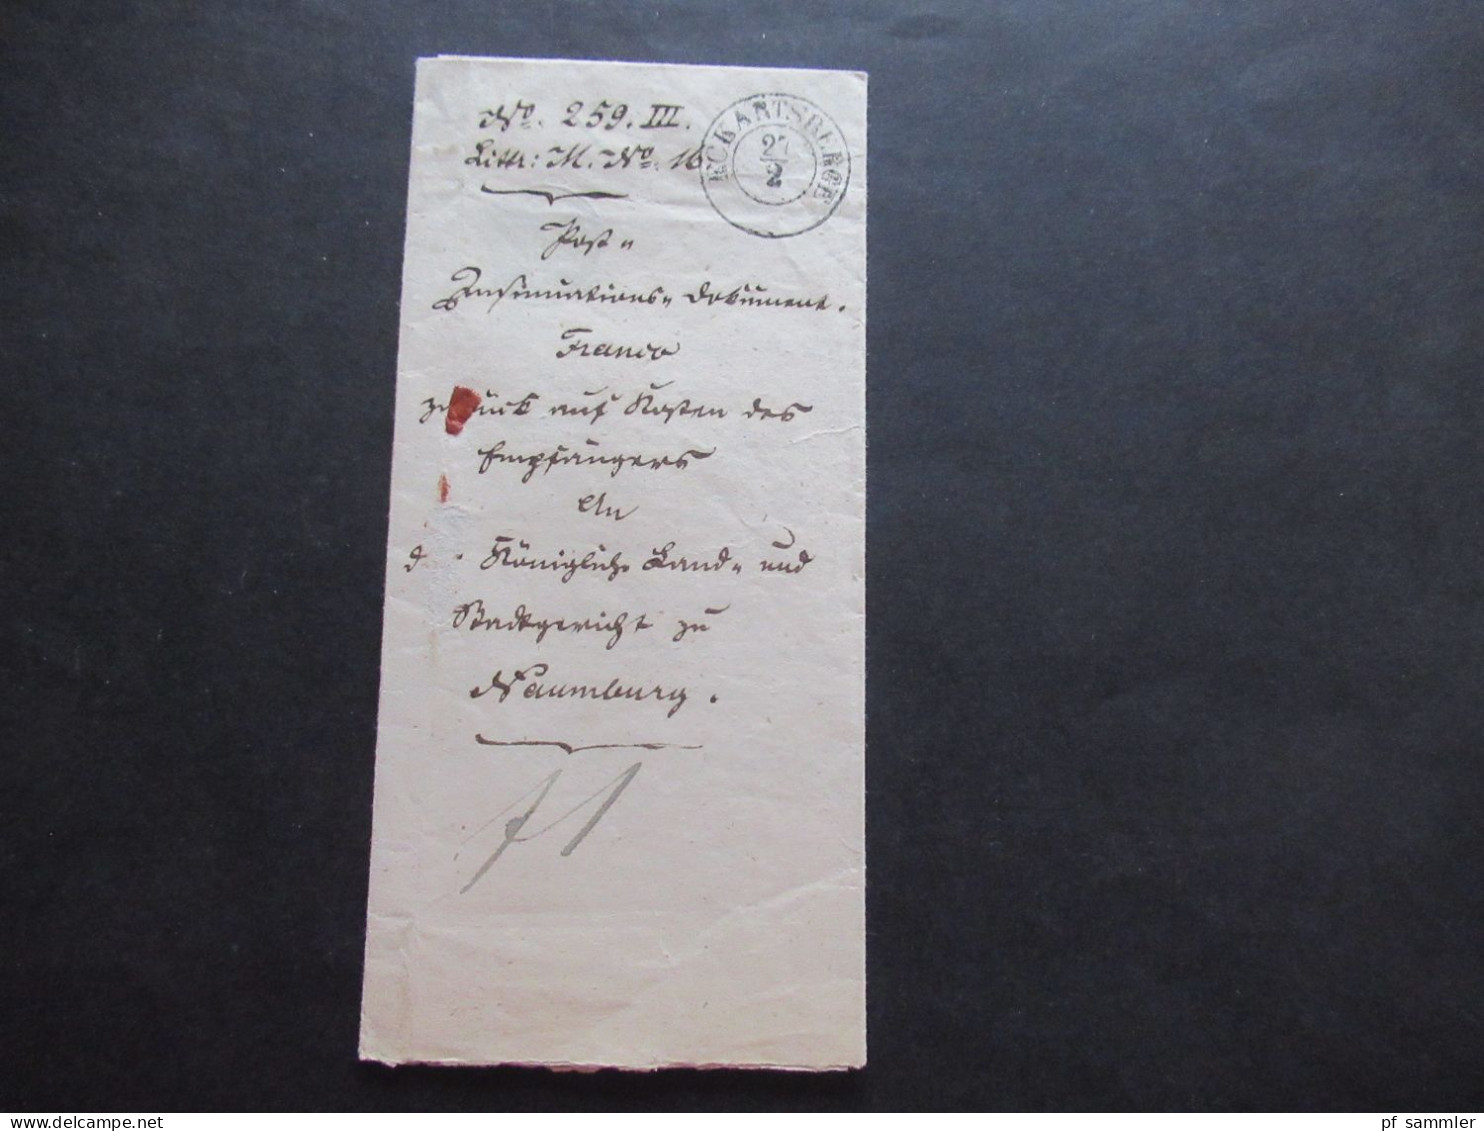 No. 259. III.
Littr: M. No. 16
ECKARTSBERGE
27
2
Post-
Insinuations-Dokument.
Franco
zurück auf Kosten des
Empfängers
An
d Königliche Land- und
Stadtgericht zu
Naumburg.
www.delcampe.net
pf_sammler